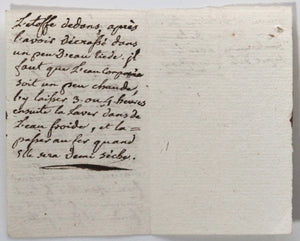 L'etoffe dedans, après
l'avoir décrassé dans
un peu d'eau tiede. il
faut que l'eau
soit un peu chaude,
l'y laisser 3. ou 4 heures
ensuite la laver dans de
l'eau froide, et la =
passer au fer quand
elle sera demi sèche.